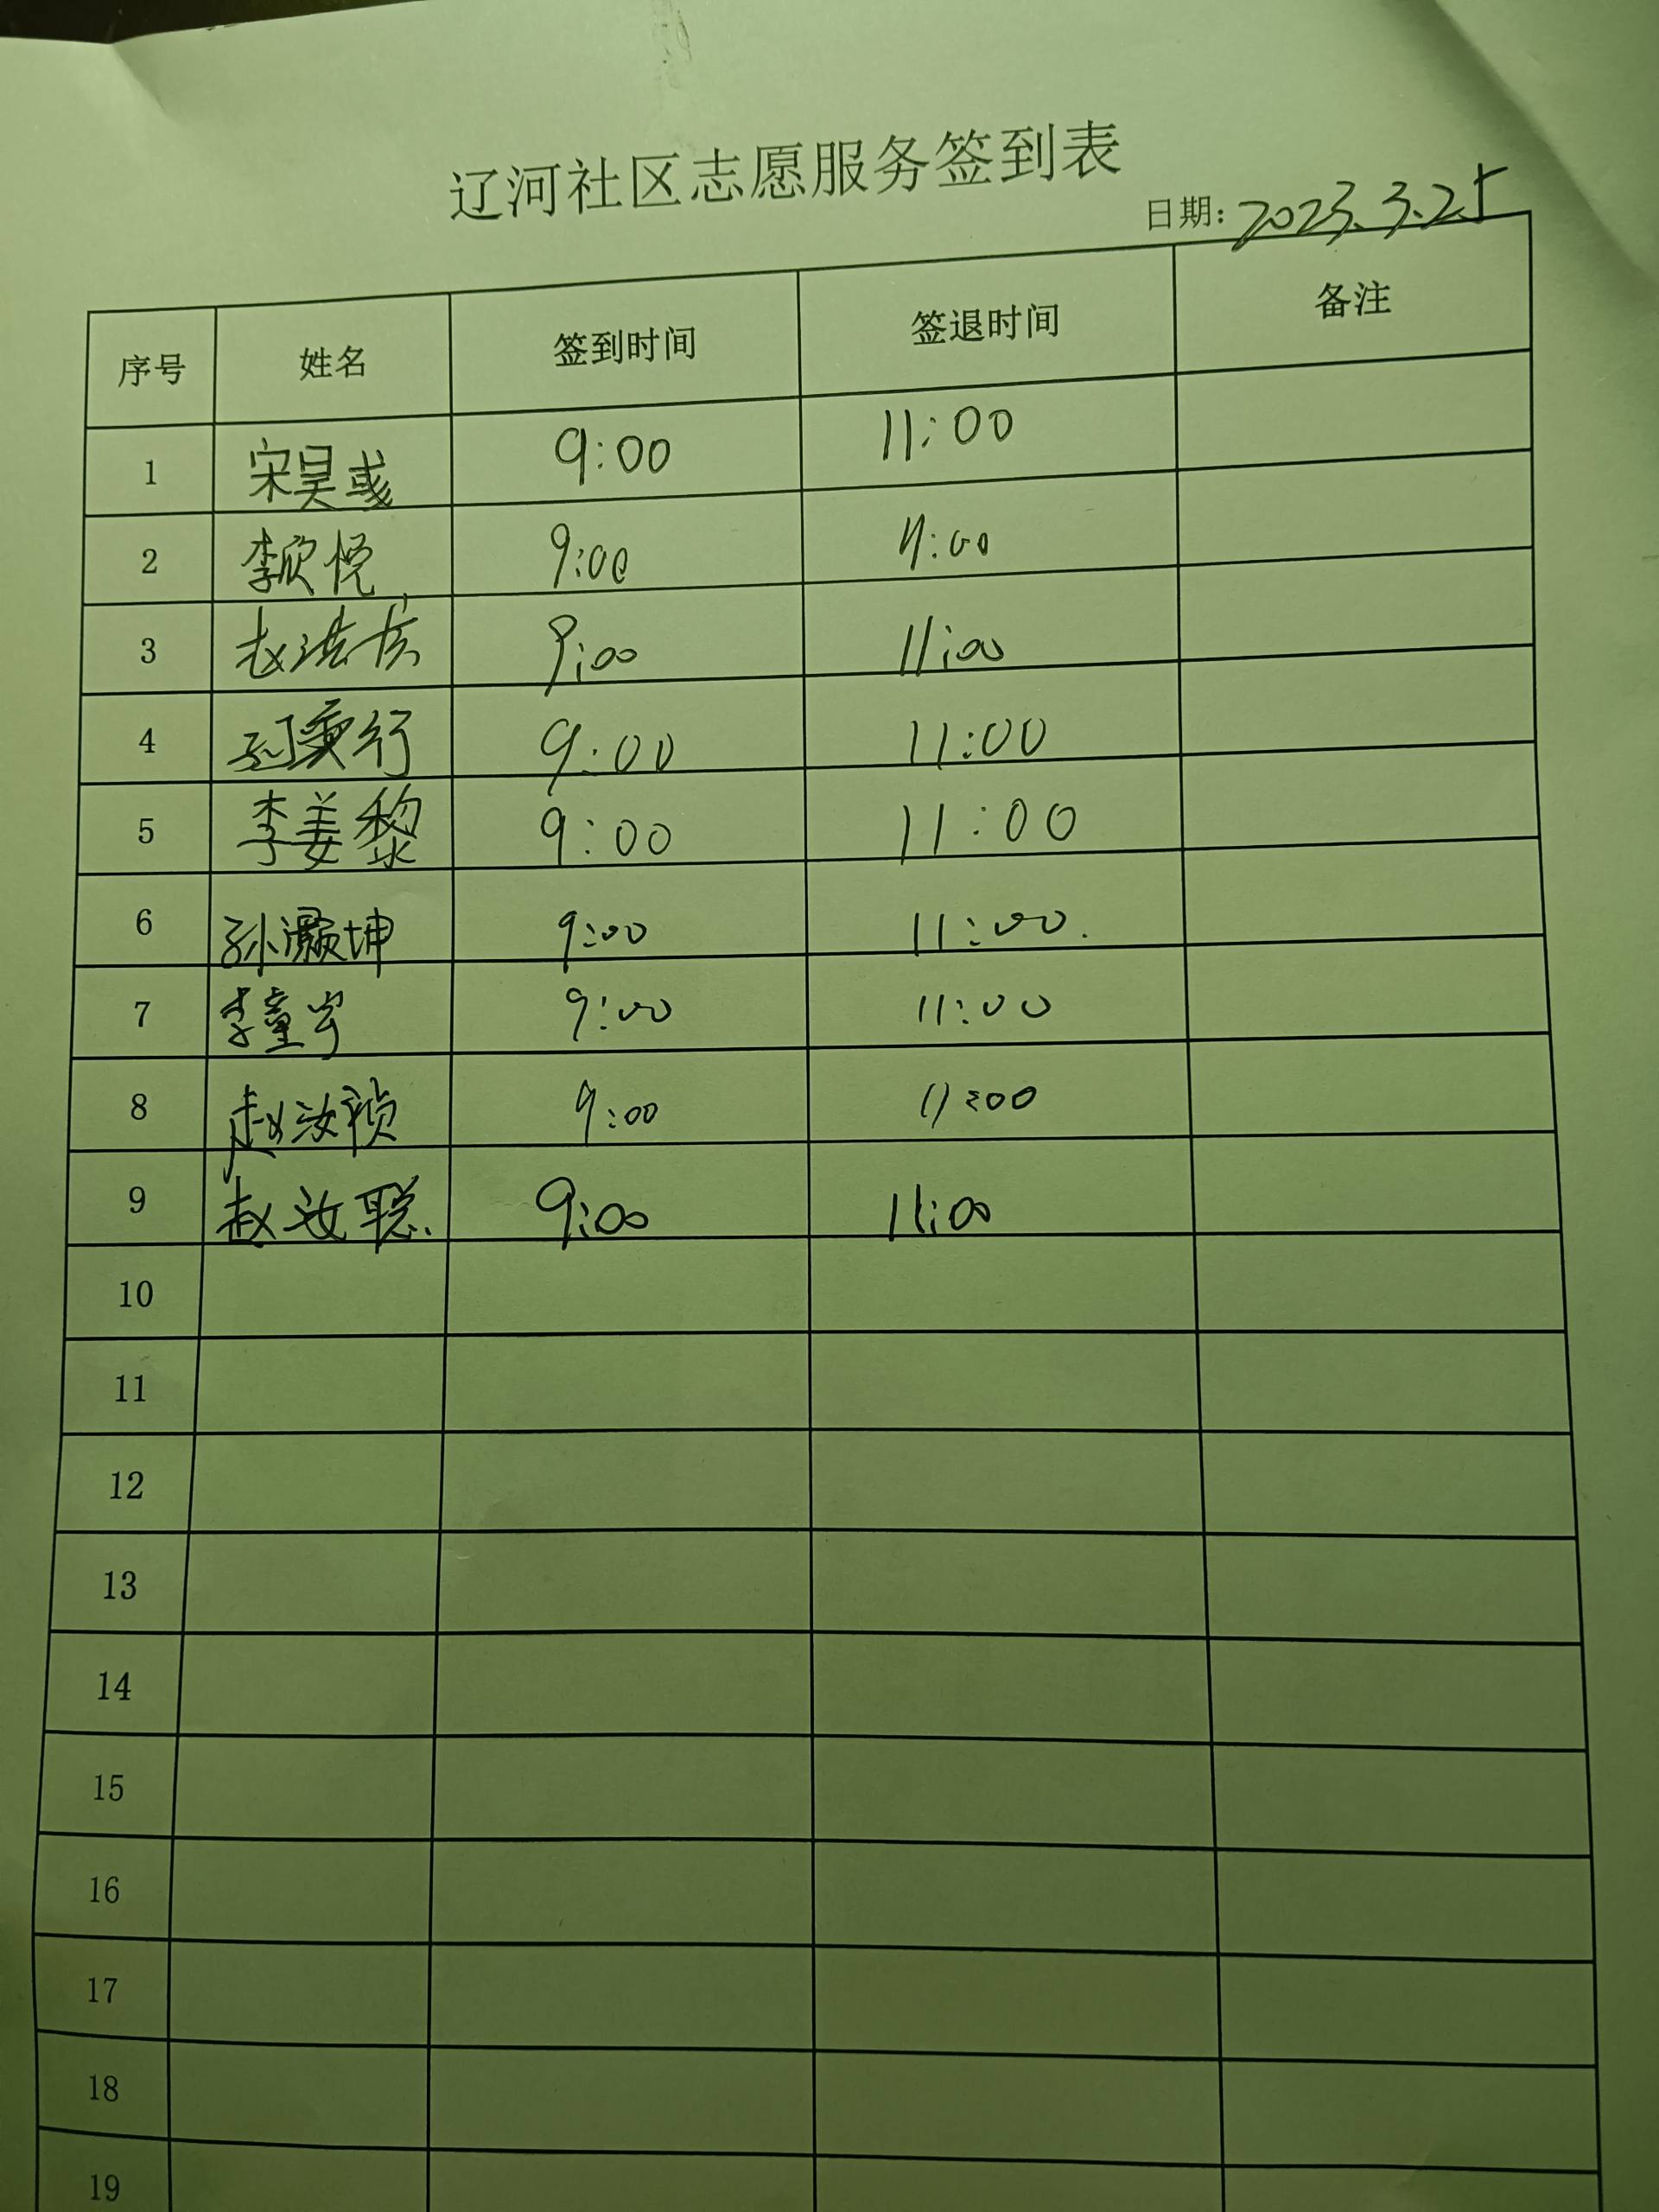 辽河社区志愿服务签到表
日期: 2023.3.25
序号 姓名 签到时间 签退时间 备注
1 宋昊彧 9:00 11:00
2 李欣悦 9:00 11:00
3 赵 9:00 11:00
4 行 9:00 11:00
5 李姜黎 9:00 11:00
6 孙灏坤 9:00 11:00.
7 李童宇 9:00 11:00
8 赵汝祯 9:00 11:00
9 赵汝聪. 9:00 11:00
10
11
12
13
14
15
16
17
18
19